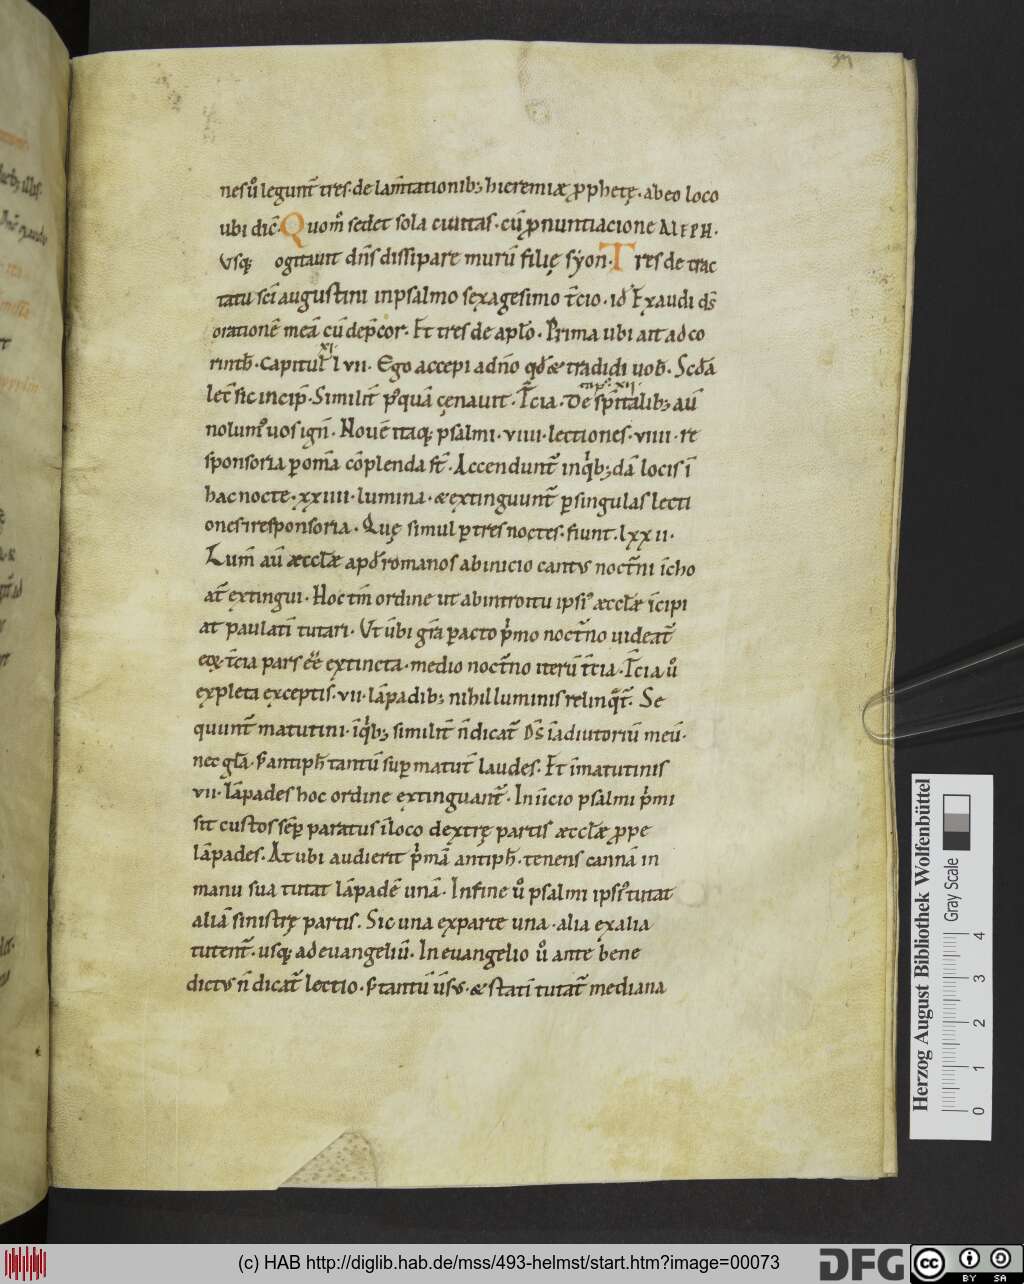 nes ů legunt̄ tres· de lam̄tationib; hieremiæ ꝓphetę· ab eo loco
ubi dic̄· Quom̊ sedet sola ciuitas· cū ꝓnuntiacione ALEPH·
Vsq; ogitauit dn̄s dissipare murū filię sẏon· Tres de trac
tatu sc̄i augustini in psalmo sexagesimo t̄cio· id̄ Exaudi d̄s
orationē meā cū dep̄cor· Et tres de apl̄o· Prima ubi ait ad co
rinth̄· capitul̄ l vii· Ego accepi a dn̄o qd̄ & tradidi uob̄· Scd̄a
xi·
let̄ sic incip̄· Similit̄ p̊quā cęnauit· T̄cia· De sp̄italib; aū
cap̄· xii·
nolum̊ uos ign̄· Nouē itaq; psalmi· viiii· lectiones· viiii· re
sponsoria ꝑ om̄a cōplenda st̄· Accendunt̄ in qͥb; dā locis ī
hac nocte· xxiiii· lumina· & extinguunt̄ ꝑ singulas lecti
ones ⁊ responsoria· Quę simul ꝑ tres noctes· fiunt· lxx ii·
Lum̄ aū æccl̄æ apd̄ romanos ab inicio cantvs noct̄ni īcho
at̄ extingui· Hoc tm̄ ordine ut ab introitu ipsi᾿ æccl̄æ īcipi
at paulatī tutari· Vt ūbi gr̄a ꝑacto pͥmo noct̄no uideat̄
eoꝝ t̄cia pars ēē extincta· medio noct̄no iterū t̄cia· T̄cia ů
expleta exceptis· vii· lāpadib; nihil luminis relinqͥt̄· Se
quunt̄ matutini· īqͥb; similit̄ n̄ dicat̄ D̄s ī adiutoriū meū·
nec gl̄a· s; antiph̄ tantū suꝑ matut̄ laudes· Et ī matutinis
vii· lāpades hoc ordine extinguant̄· In īicio psalmi pͥmi
sit custos semꝑ paratus ī loco dextrę partis æccl̄æ ꝓpe
lāpades· At ubi audierit pͥmā antiph̄· tenens cannā in
manu sua tutat lāpadē unā· In fine ů psalmi ipsi᾿ tutat
aliā sinistrę partis· Sic una ex parte una· alia ex alia
tutent̄· usq; ad euangeliū· In euangelio ů ante bene
dictvs n̄ dicat̄ lectio· s; tantū ūs᾿· & statī tutat̄ mediana
Herzog August Bibliothek Wolfenbüttel
Gray Scale
0 1 2 3 4
(c) HAB http://diglib.hab.de/mss/493-helmst/start.htm?image=00073
DFG
cc BY SA